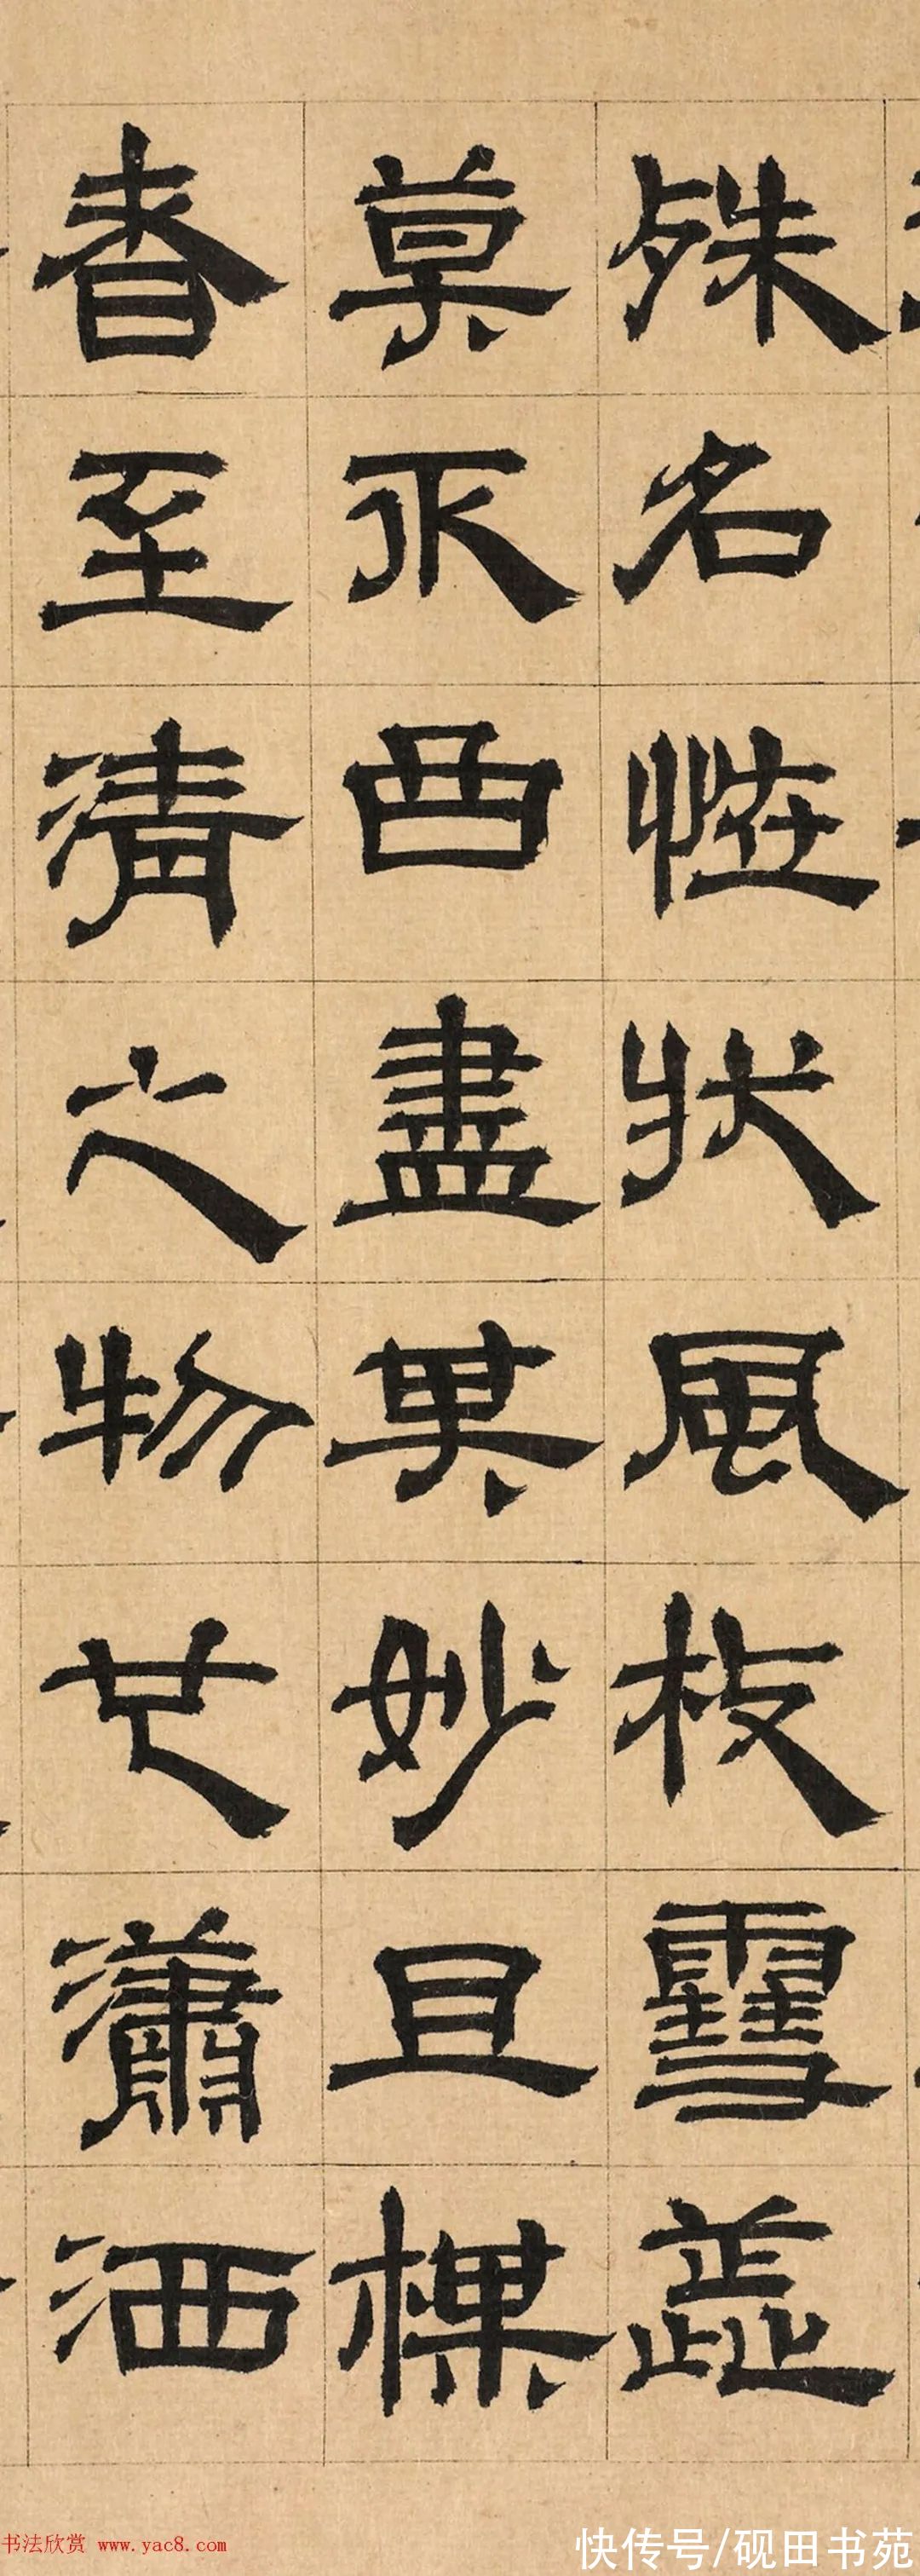 殊名怪状風枝雪蕊
莫不曲盡其妙且楳
春至清之物瀟洒
书法欣赏 www.yac8.com
快传号/砚田书苑